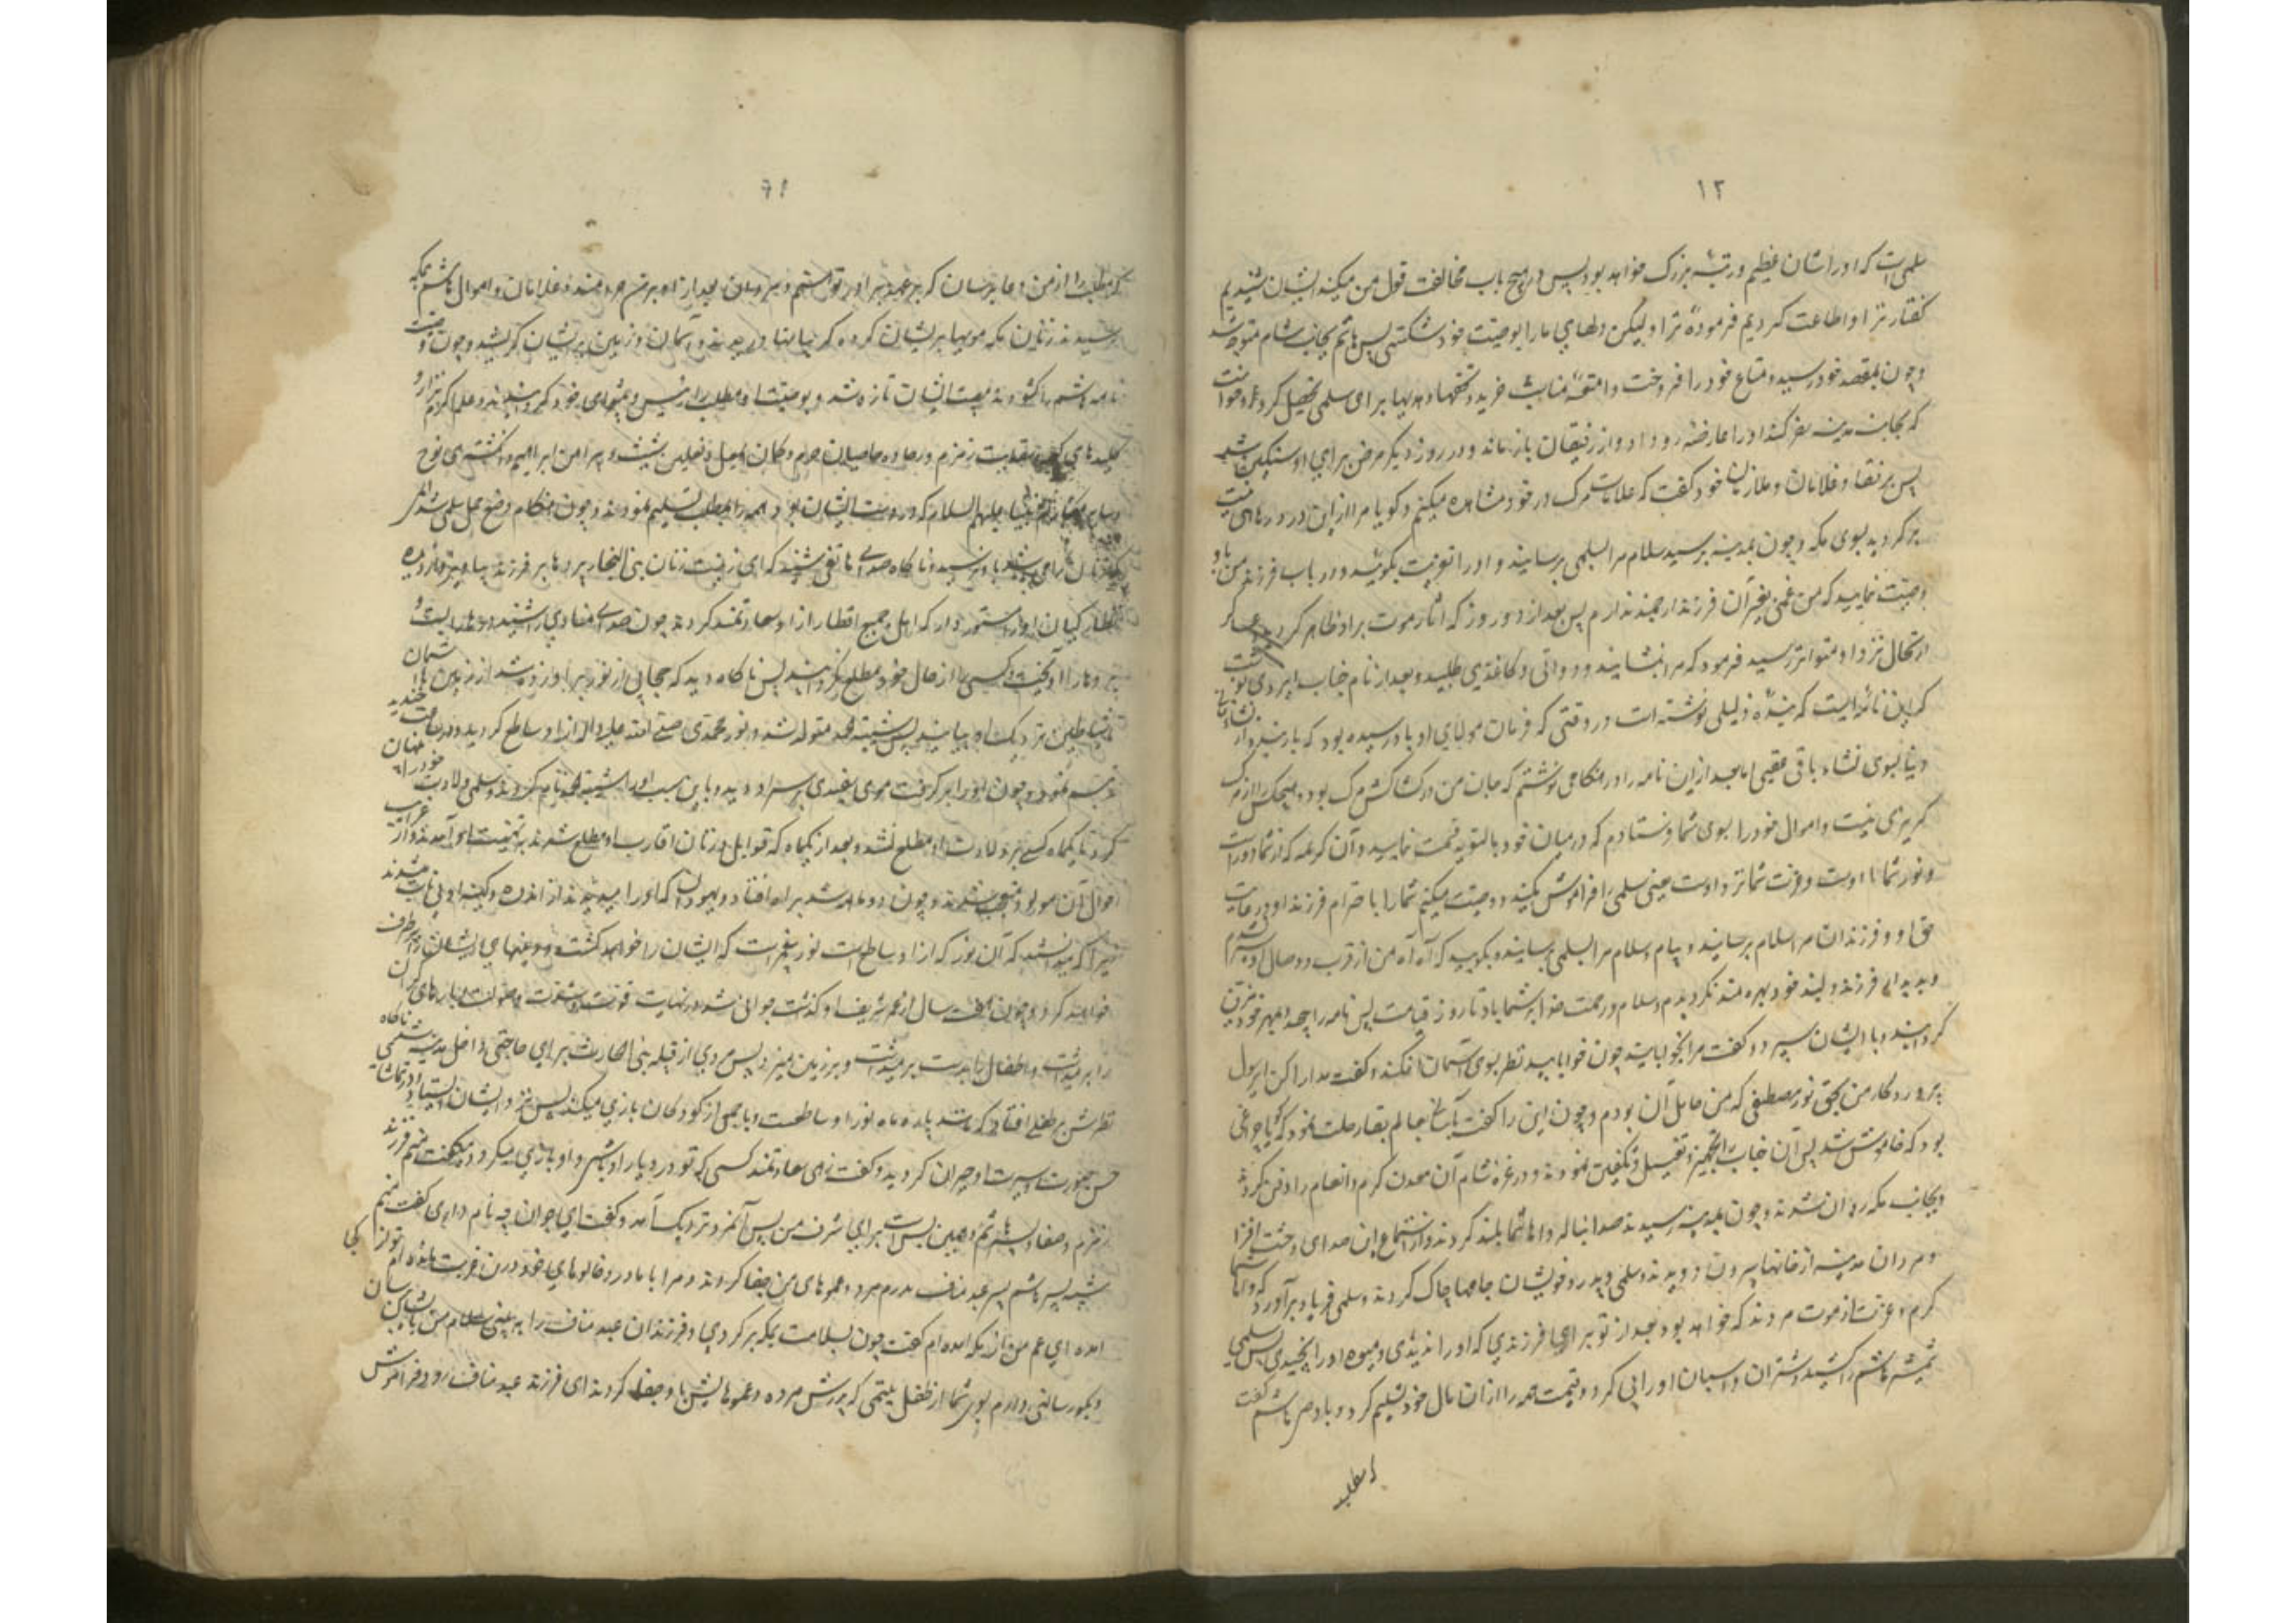 ۱۲
سلمی است که او را شان عظیم و رتبهٔ بزرک خواهد بود پس در هیچ باب مخالفت قول من میکنید ایشان شنیدیم
کفتار ترا و اطاعت کردیم فرمودهٔ ترا و لیکن دلهای ما را بوصیت خود شکستی پس هاشم بجانب شام متوجه شد
و چون بمقصد خود رسید و متاع خود را فروخت و امتعهٔ مناسب خرید و تحفها و هدیها برای سلمی تحصیل کرد و خواست
که بجانب مدینه سفر کند او را عارضه رو داد و از رفیقان باز ماند و در روز دیکر مرض برای او سنکین شد
پس برفقا و غلامان و ملازمان خود کفت که علامات مرک در خود مشاهده میکنم و کویا مرا ازین درد رهائی نیست
برکردید بسوی مکه و چون بمدینه برسید سلام مرا بسلمی برسانید و او را تعزیت بکوئید و در باب فرزند من باو
وصیت نمایید که من غمی بغیر آن فرزند ارجمند ندارم پس بعد از دو روز که آثار موت بر او ظاهر کردید و عساکر
ارتحال نزد او متواتر رسید فرمود که مرا بنشانید و دواتی و کاغذی طلبید و بعد از نام جناب ایزدی نوشت
که این نامه‌ایست که بندهٔ ذلیلی نوشته است در وقتی که فرمان مولای او باو رسیده بود که بار بندد از نشاء
دنیا بسوی نشاء باقی عقبی اما بعد از این نامه را در هنکامی نوشتم که جان من در کشاکش مرک بود و هیچکس را از مرک
کریزی نیست و اموال خود را بسوی شما فرستادم که در میان خود بالسویه قسمت نمایید و آن کریمه که از شما دور است
و نور شما با اوست و عزت شما نزد اوست یعنی سلمی را فراموش مکنید و وصیت میکنم شما را باحترام فرزند او و رعایت
حق او و فرزندان مرا سلام برسانید و پیام و سلام مرا بسلمی برسانید و بکویید که آه آه من از قرب و وصال او سیر نشدم
و بدیدار فرزند دلبند خود بهره مند نکردیدم و سلام و رحمت خدا بر شما باد تا روز قیامت پس نامه را پیچید و بمهر خود مزین
کردانید و بایشان سپرد و کفت مرا بخوابانید چون خوابانید نظر بسوی آسمان افکند و کفت مدارا کن ای رسول
پروردکار من بحق نور مصطفی که من حامل آن بودم و چون این را کفت بآسانی بعالم بقا رحلت نمود که کویا چراغی
بود که خاموش شد پس آن جناب را تجهیز و تغسیل و تکفین نمودند و در غزهٔ شام آن معدن کرم و انعام را دفن کردند
و بجانب مکه روان شدند و چون بمدینه رسیدند صدا بناله و اهاشما بلند کردند و از استماع این صدای وحشت افزا
مردان مدینه از خانها بیرون دویدند و سلمی و پدر و خویشان جامها چاک کردند و سلمی فریاد برآورد که واهاشما
کرم و عزت از موت مردند که خواهد بود بعد از تو برای فرزندی که او را ندیدی و میوه او را نچیدی پس سلمی
شمشیر هاشم را کشید و شتران و اسبان او را پی کرد و قیمت همه را از آن مال خود تسلیم کرد و باوصی هاشم کفت
که مطلب
۱۳
که مطلب را از من دعا برسان که بر عهد برادر تو هستم و مردان بعد از او بر من حرامند و غلامان و اموال هاشم بمکه
رسیدند زنان مکه مویها پریشان کرده کریبانها دریدند و آسمان و زمین بر ایشان کریستند و چون وصیت
نامه هاشم را کشودند مصیبت ایشان تازه شد و بوصیت او مطلب را رئیس و پیشوای خود کردانیدند و علم اکرم نزار و
کلیدهای کعبه و سقایت زمزم و رفاده حاجیان حرم و کمان اسمعیل و نعلین شیث و پیراهن ابراهیم و انکشتری نوح
و سایر مکارم انبیا علیهم السلام که در دست ایشان بود همه را بمطلب تسلیم نمودند و چون هنکام وضع حمل سلمی شد المی
که زنان را می‌باشد باو نرسید و ناکاه صدای هاتفی شنید که ای زینت زنان بنی النجار پرده‌ها بر فرزند بیاویز و از دیده
نظار کیان او را مستور دار که اهل جمیع اقطار از او سعادتمند کردند چون صدای منادی را شنید درها را بست و
پرده‌ها را آویخت و کسی را از حال خود مطلع نکردانید پس ناکاه دید که حجابی از نور بر او زده شد از زمین تا آسمان
که شیاطین نزدیک او نیایند پس شیبة الحمد متولد شد و نور محمدی صلی الله علیه و آله از او ساطع کردید و در ساعت خندید
و تبسم نمود و چون او را برکرفت موی سفیدی بر سر او دید و باین سبب او را شیبه نام کردند و سلمی ولادت خود را پنهان
کرد تا یکماه کسی بر ولادت او مطلع نشد و بعد از یکماه که قوابل و زنان اقارب او مطلع شدند بتهنیت او آمدند و از غرایب
احوال آن مولود متعجب شدند و چون دو ماهه شد براه افتاد و یهودان که او را میدیدند از اندوه و کینه او بی تاب میشدند
زیرا که میدانستند که آن نور که از او ساطع است نور پیغمبریست که ایشان را خواهد کشت و دینهای ایشان را برطرف
خواهد کرد و چون هفت سال از عمر شریف او کذشت جوانی شد در نهایت قوت و شوکت و صولت و بارهای کران
را برمیداشت و اطفال را بدست برمیداشت و بر زمین میزد پس مردی از قبیله بنی الحارث برای حاجتی داخل مدینه شد ناکاه
نظرش بر طفلی افتاد که مانند پاره ماه نور او ساطعست و با جمعی از کودکان بازی میکند پس نزد ایشان ایستاد و در تماشای
حسن صورت و سیرت او حیران کردید و کفت زهی سعادتمند کسی که تو در دیار او باشی و او بازی میکرد و میکفت منم فرزند
زمزم و صفا و پسر هاشم و همین بس است برای شرف من پس آنمرد نزدیک آمد و کفت ای جوان چه نام داری کفت منم
شیبه پسر هاشم پسر عبد مناف پدرم مرد و عموهای من جفا کردند و مرا با مادر و خالوهای خود درین غربت مانده‌ام تو از کجا
آمده ای عم من از مکه آمده‌ام کفت چون بسلامت بمکه برکردی و فرزندان عبد مناف را ببینی سلام من بایشان برسان
و بکو رسالتی دارم بسوی شما از طفل یتیمی که پدرش مرده و عموهایش باو جفا کردند ای فرزند عبد مناف زود فراموش